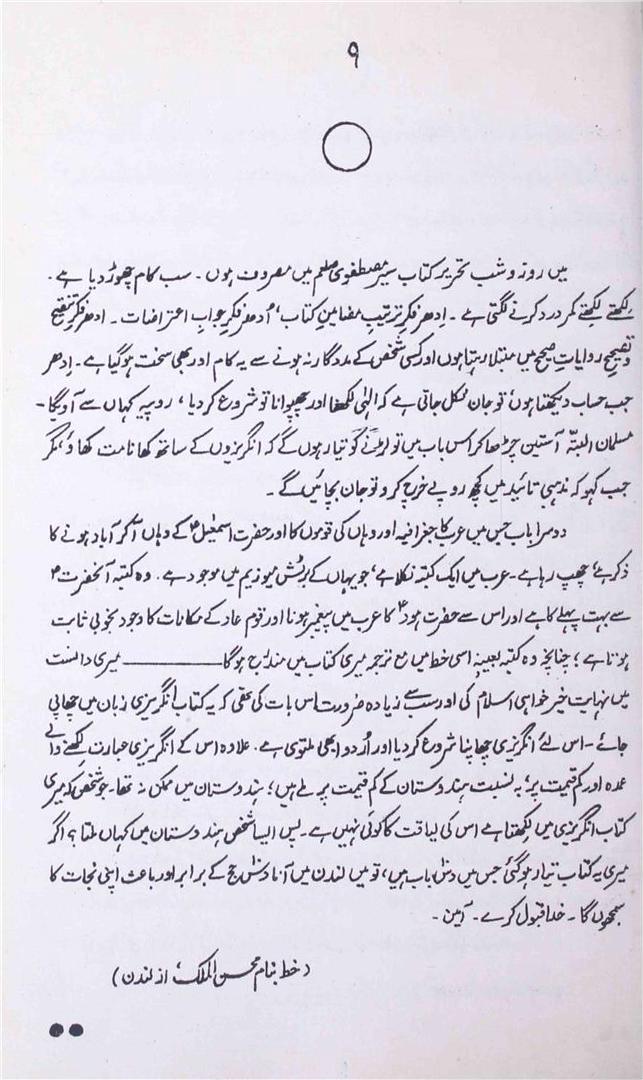 ۹
میں روز و شب تحریر کتاب سیر مصطفوی صلعم میں مصروف ہوں۔ سب کام چھوڑ دیا ہے۔
لکھتے لکھتے کمر درد کرنے لگتی ہے۔ اِدھر فکر ترتیبِ مضامینِ کتاب، اُدھر فکر جوابِ اعتراضات۔ ادھر فکر تنقیح
و تصحیح روایاتِ صحیح میں مبتلا رہتا ہوں اور کسی شخص کے مددگار نہ ہونے سے یہ کام اور بھی سخت ہو گیا ہے۔ اِدھر
جب حساب دیکھتا ہوں تو جان نکل جاتی ہے کہ الٰہی لکھنا اور چھپوانا تو شروع کر دیا، روپیہ کہاں سے آویگا۔
مسلمان البتہ آستین چڑھا کر اس باب میں تو لڑنے کو تیار ہوں گے کہ انگریزوں کے ساتھ کھانا مت کھاؤ، مگر
جب کہو کہ مذہبی تائید میں کچھ روپے خرچ کرو تو جان بچائیں گے۔
دوسرا باب جس میں عرب کا جغرافیہ اور وہاں کی قوموں کا اور حضرت اسمٰعیل ؑ کے وہاں آ کر آباد ہونے کا
ذکر ہے، چھپ رہا ہے۔ عرب میں ایک کتبہ نکلا ہے، جو یہاں کے برٹش میوزیم میں موجود ہے۔ وہ کتبہ آنحضرت ؐ
سے بہت پہلے کا ہے اور اس سے حضرت ہود ؑ کا عرب میں پیغمبر ہونا اور قوم عاد کے مکانات کا وجود بخوبی ثابت
ہوتا ہے؛ چنانچہ وہ کتبہ بعینہٖ اسی خط میں مع ترجمہ میری کتاب میں مندرج ہوگا ــــــــــــ میری دانست
میں نہایت خیر خواہی اسلام کی اور سب سے زیادہ ضرورت اس بات کی تھی کہ یہ کتاب انگریزی زبان میں چھاپی
جائے۔ اس لئے انگریزی چھاپنا شروع کر دیا اور اُردو ابھی ملتوی ہے۔ علاوہ اس کے انگریزی عبارت لکھنے والے
عمدہ اور کم قیمت پر، بہ نسبت ہندوستان کے کم قیمت پر ملے ہیں؛ ہندوستان میں ممکن نہ تھا۔ جو شخص کہ میری
کتاب انگریزی میں لکھتا ہے اس کی لیاقت کا کوئی نہیں ہے۔ پس ایسا شخص ہندوستان میں کہاں ملتا؟ اگر
میری یہ کتاب تیار ہو گئی جس میں دس باب ہیں، تو میں لندن میں آنا دس حج کے برابر اور باعث اپنی نجات کا
سمجھوں گا۔ خدا قبول کرے۔ آمین۔
(خط بنام محسن الملک، از لندن)